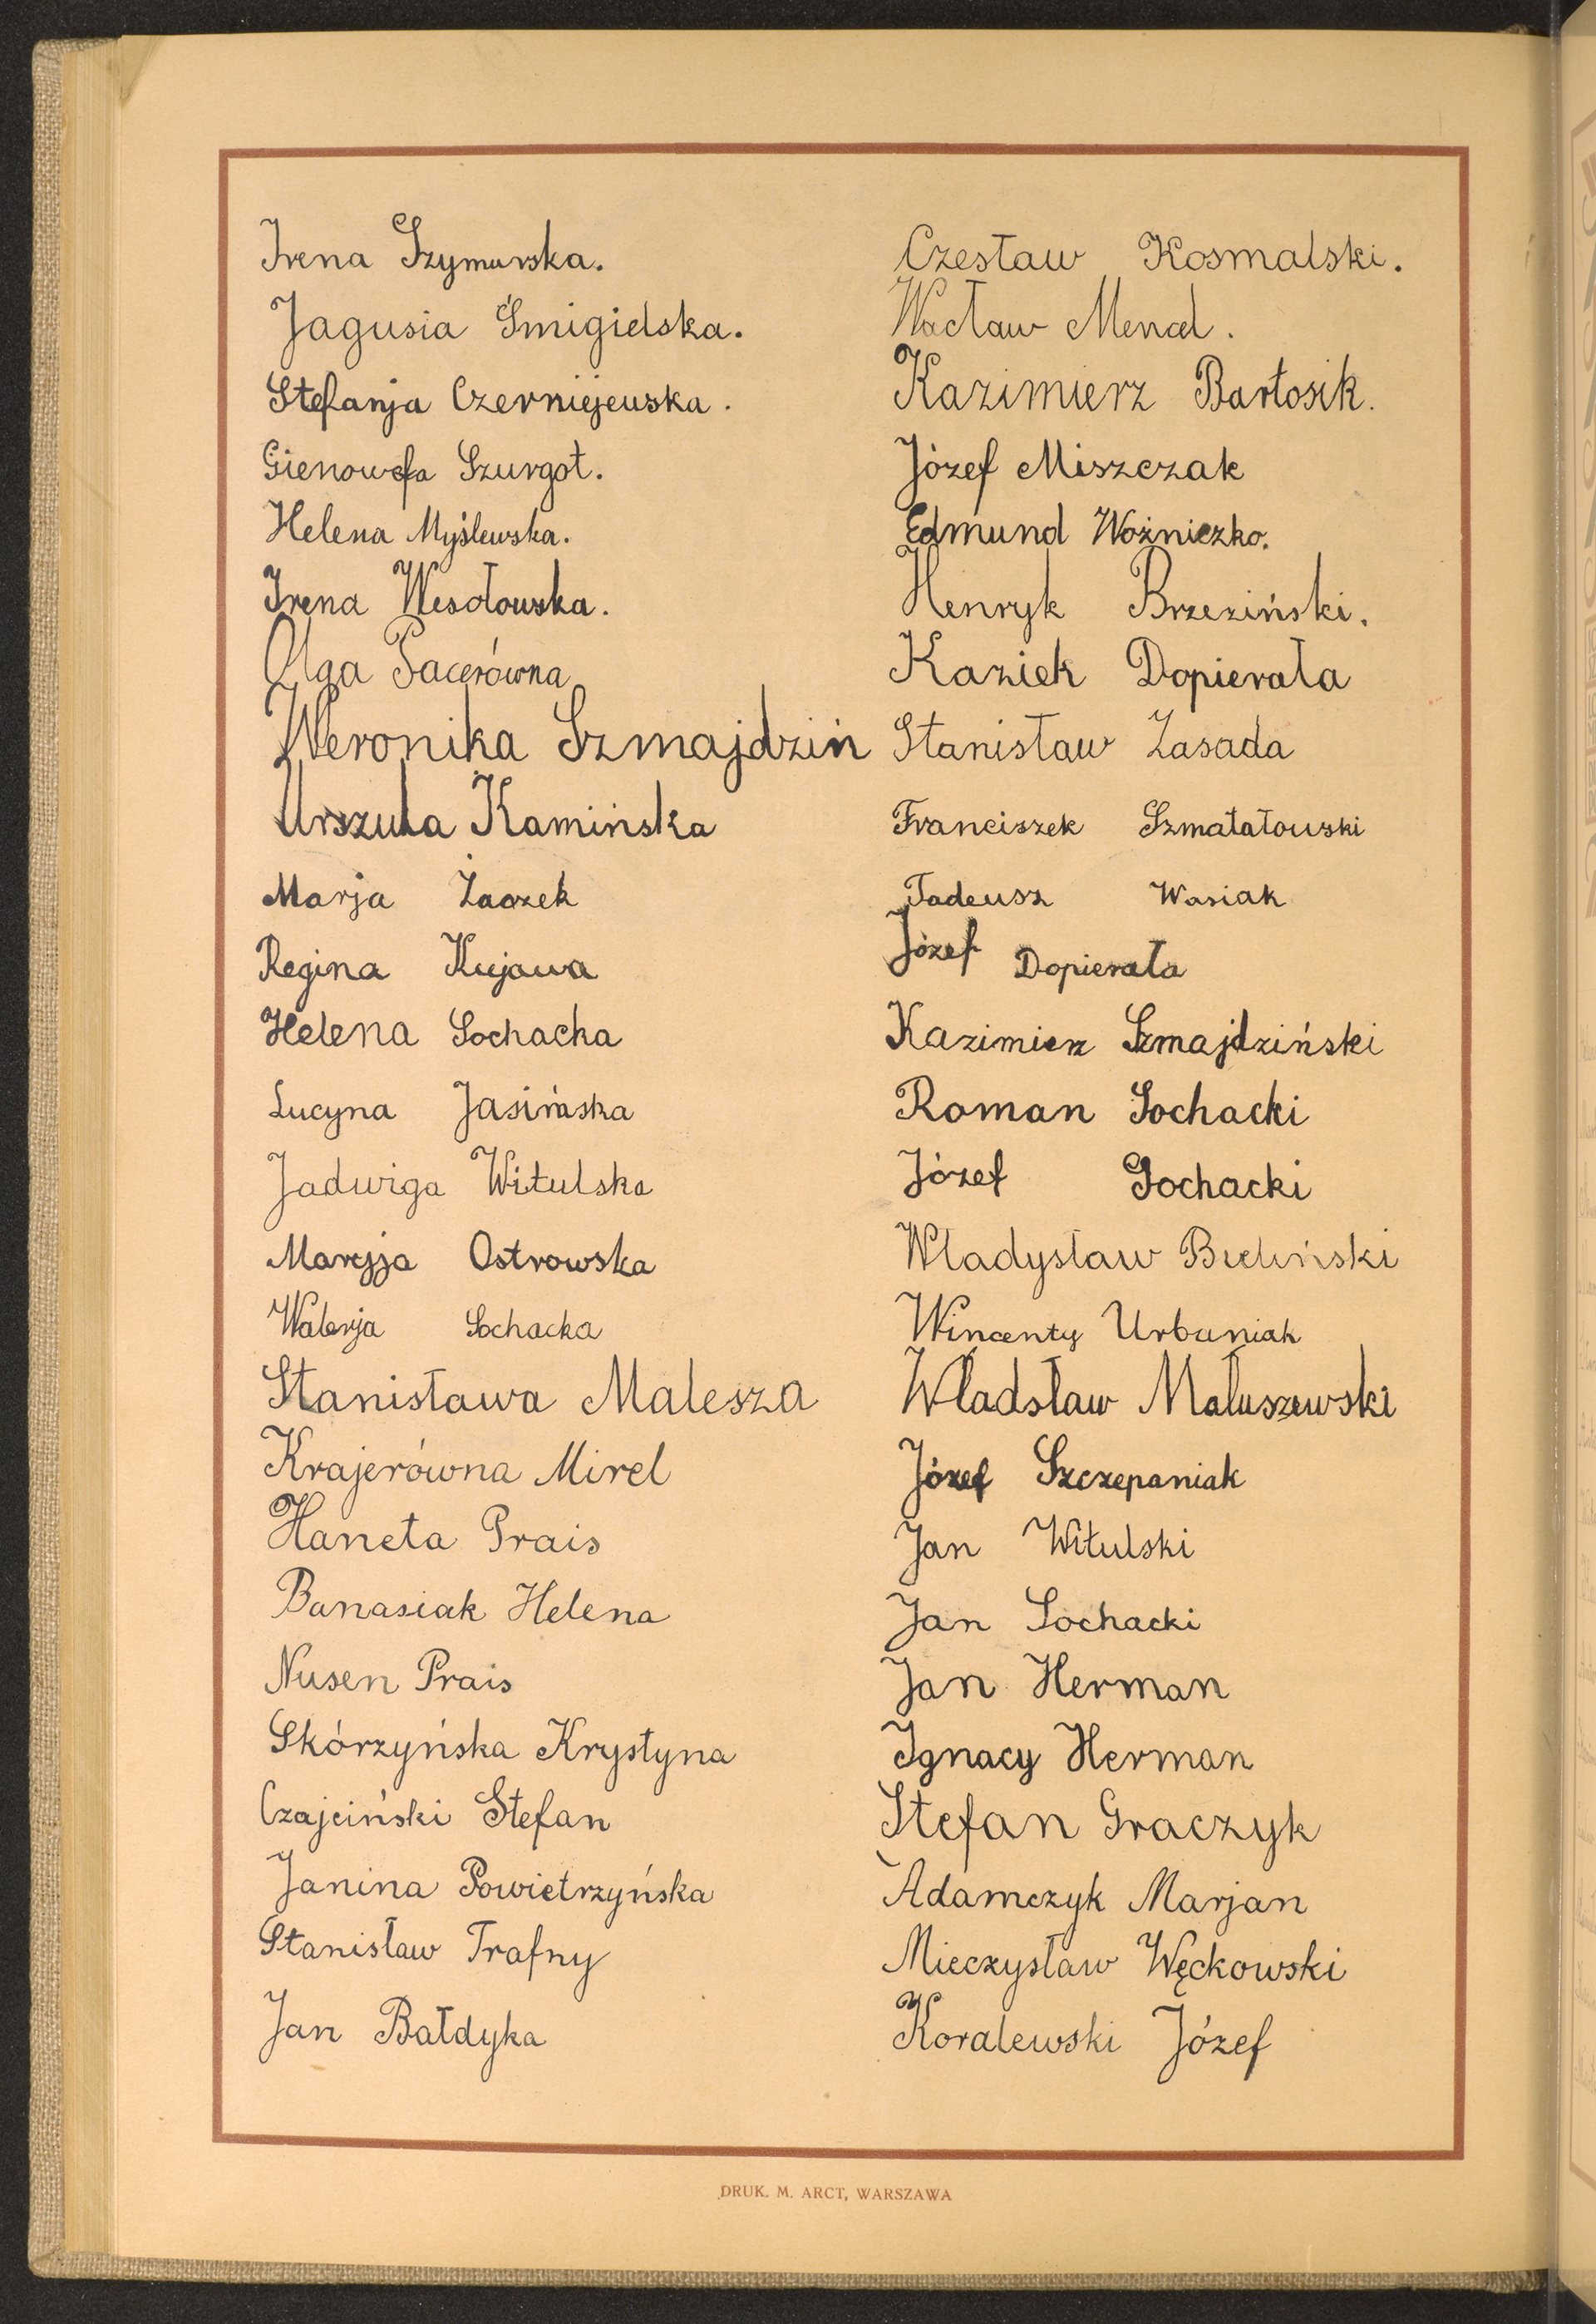 Irena Szymurska.
Jagusia Śmigielska.
Stefanja Czerniejewska.
Gienowefa Szurgot.
Helena Myślewska.
Irena Wesołowska.
Olga Pacerówna
Weronika Szmajdziń
Urszula Kamińska
Marja Żaczek
Regina Kujawa
Helena Sochacka
Lucyna Jasińska
Jadwiga Witulska
Maryja Ostrowska
Walerja Sochacka
Stanisława Malesza
Krajerówna Mirel
Haneta Prais
Banasiak Helena
Nusen Prais
Skórzyńska Krystyna
Czajciński Stefan
Janina Powietrzyńska
Stanisław Trafny
Jan Bałdyka
Czesław Kosmalski.
Wacław Mencel.
Kazimierz Bartosik.
Józef Miszczak
Edmund Woźniczko.
Henryk Brzeziński.
Kaziek Dopierała
Stanisław Zasada
Franciszek Szmatałowski
Tadeusz Wasiak
Józef Dopierała
Kazimierz Szmajdziński
Roman Sochacki
Józef Sochacki
Władysław Bieliński
Wincenty Urbaniak
Władsław Maluszewski
Józef Szczepaniak
Jan Witulski
Jan Sochacki
Jan Herman
Ignacy Herman
Stefan Graczyk
Adamczyk Marjan
Mieczysław Węckowski
Koralewski Józef
DRUK. M. ARCT, WARSZAWA